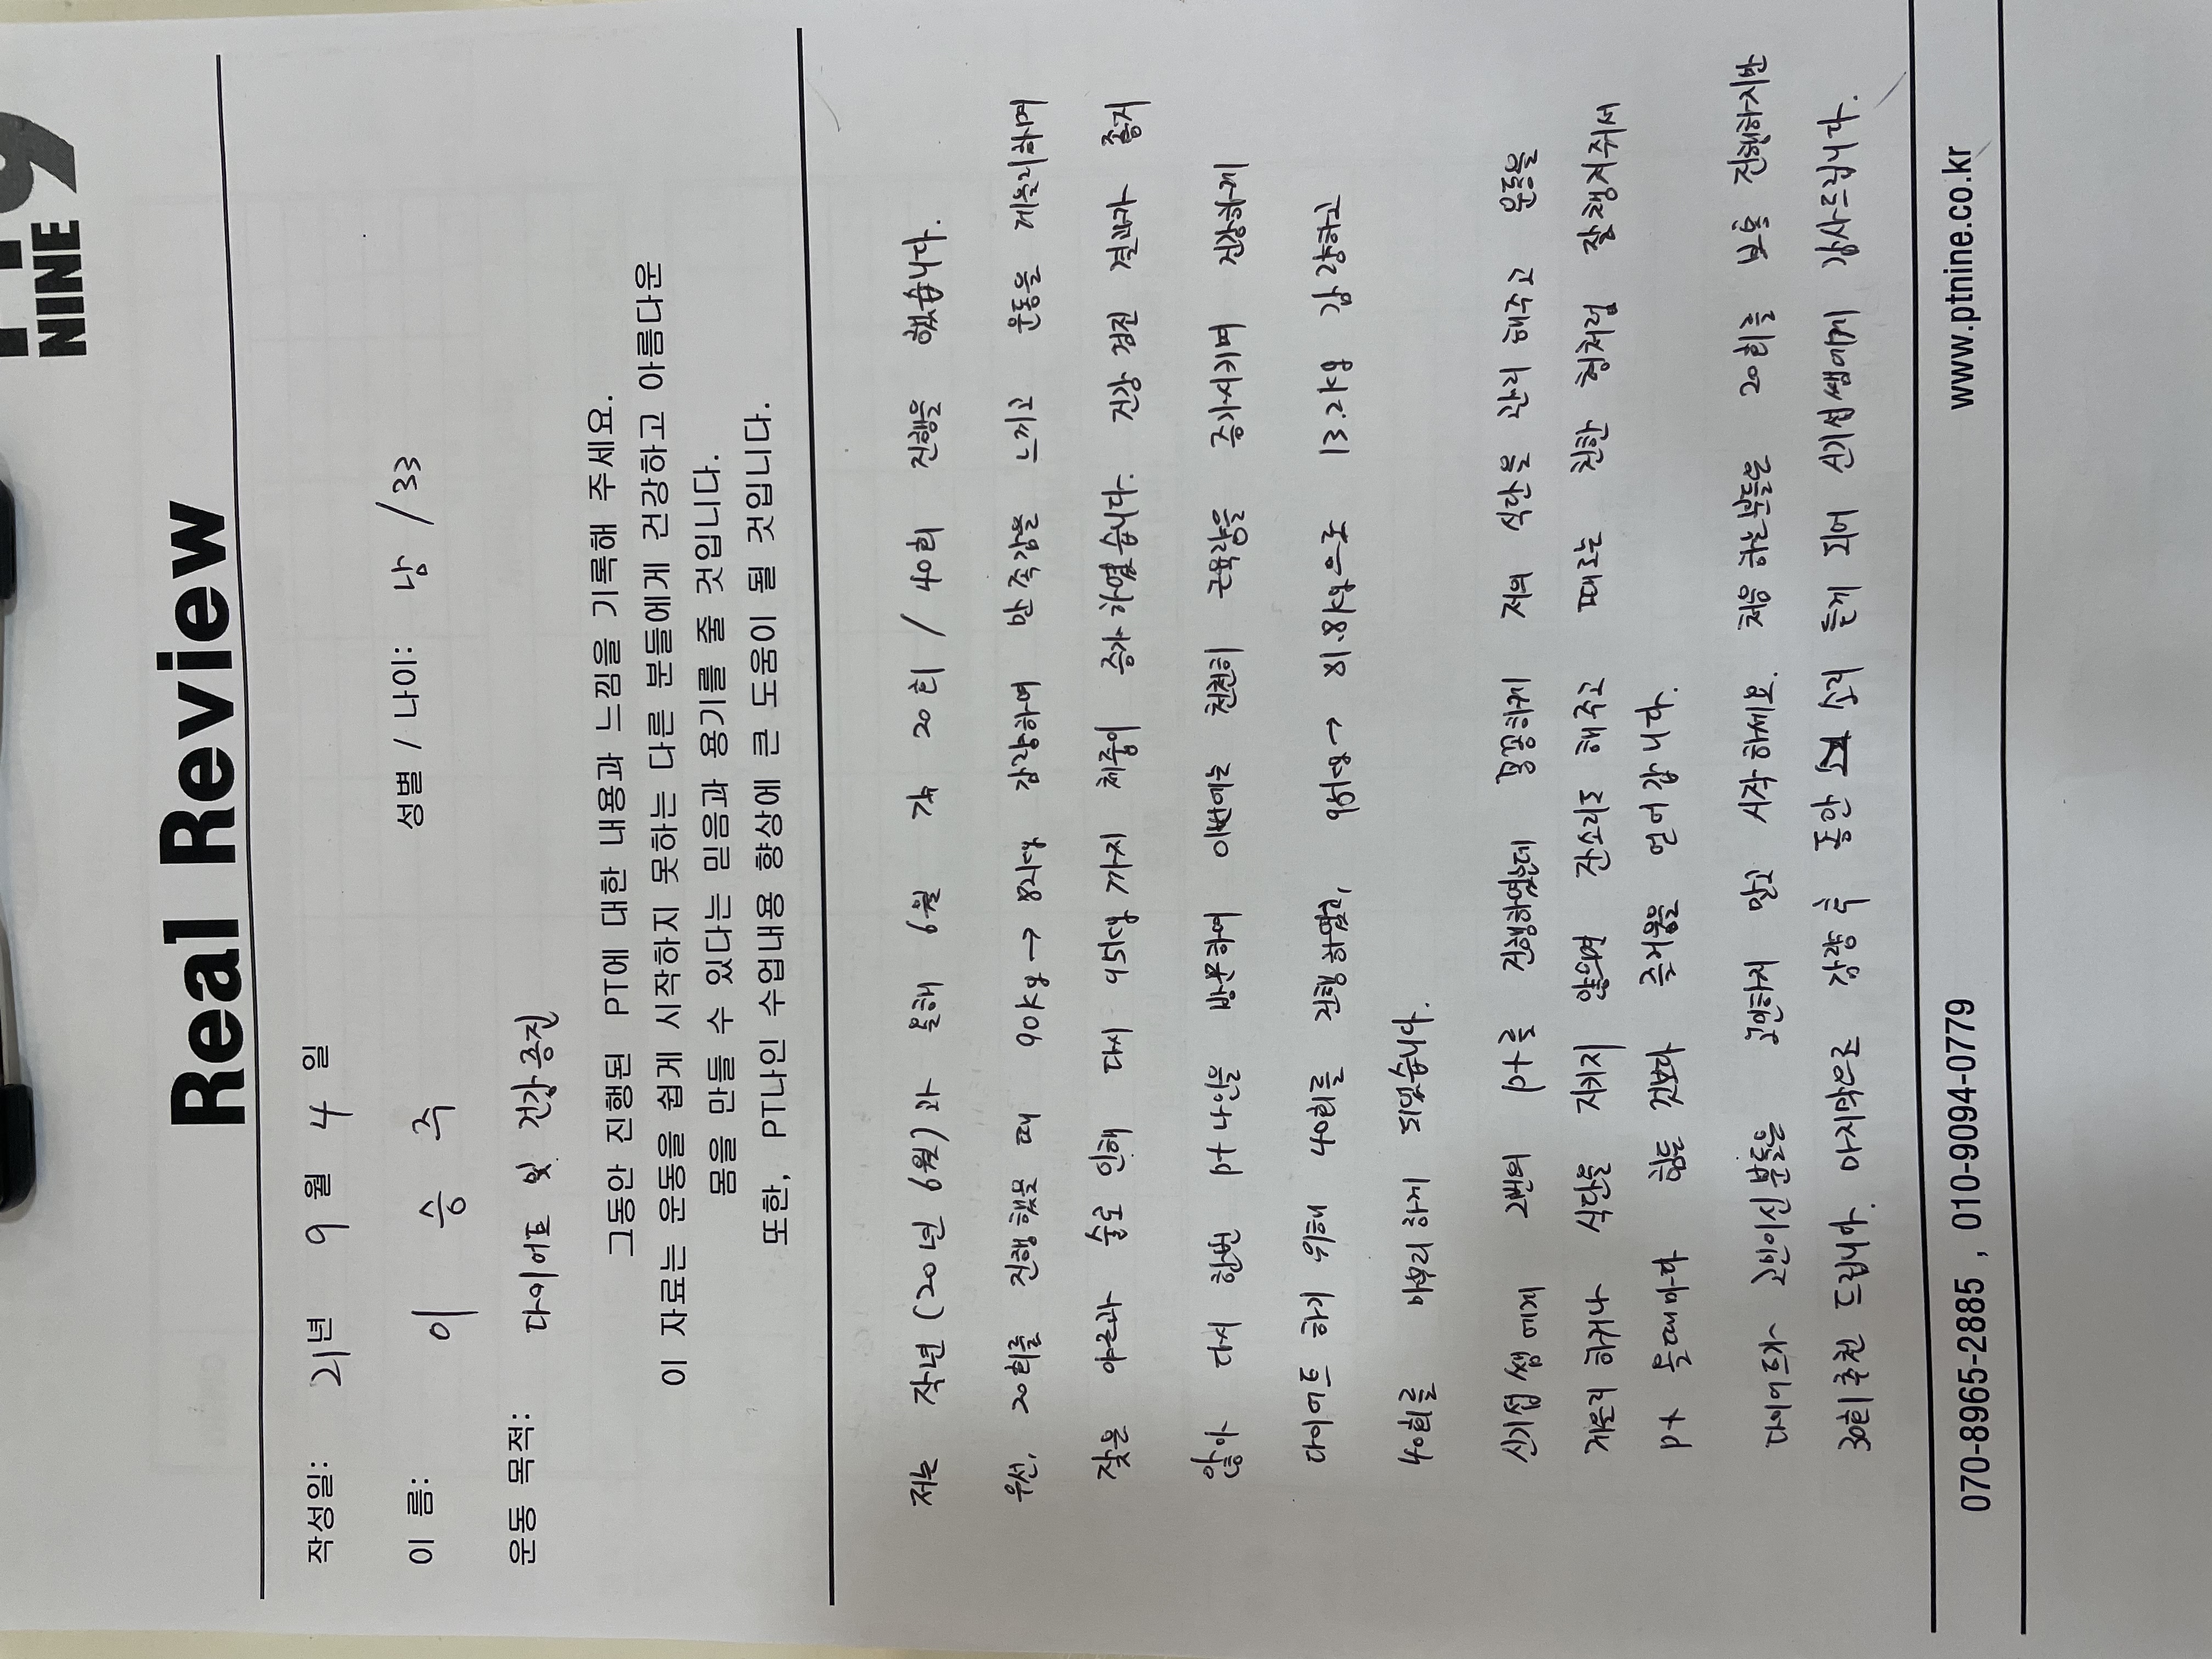 NINE
Real Review
작성일: 21년 9월 4일
이 름: 이 승 주 성별 / 나이: 남 / 33
운동 목적: 다이어트 및 건강증진
그동안 진행된 PT에 대한 내용과 느낌을 기록해 주세요.
이 자료는 운동을 쉽게 시작하지 못하는 다른 분들에게 건강하고 아름다운
몸을 만들 수 있다는 믿음과 용기를 줄 것입니다.
또한, PT나인 수업내용 향상에 큰 도움이 될 것입니다.
저는 작년(20년 6월)과 올해 6월 각 20회 / 40회 진행을 했습니다.
우선, 20회를 진행했을 때 90kg → 82kg 감량하며 만족감을 느끼고 운동을 게을리하며
잦은 야근과 술로 인해 다시 95kg 까지 체중이 증가하였습니다. 건강 검진 결과가 좋지
않아 다시 한번 pt나인을 방문하여 이번에는 천천히 근육량을 증가시키며 건강하게
다이어트 하기 위해 40회를 진행하였고, 95kg → 81.8kg으로 13.2kg 감량하고
40회를 마무리 하게 되었습니다.
신기섭 쌤에게 2번의 pt를 진행하였는데 꼼꼼하게 저의 식단을 관리 해주고 운동을
게을리 하거나 식단을 지키지 않으면 잔소리도 해주고 때로는 친한 형처럼 잘 챙겨줘서
pt 올때마다 힘든 것보다 즐거움을 얻어 갑니다.
다이어트가 고민이신 분들은 고민하지 말고 시작하세요. 처음 하는분들은 20회를 보통 진행하지만
30회 추천 드립니다. 마지막으로 감량 후 동안 소리 듣게 되어 신기섭쌤에게 감사드립니다.
070-8965-2885 , 010-9094-0779 www.ptnine.co.kr